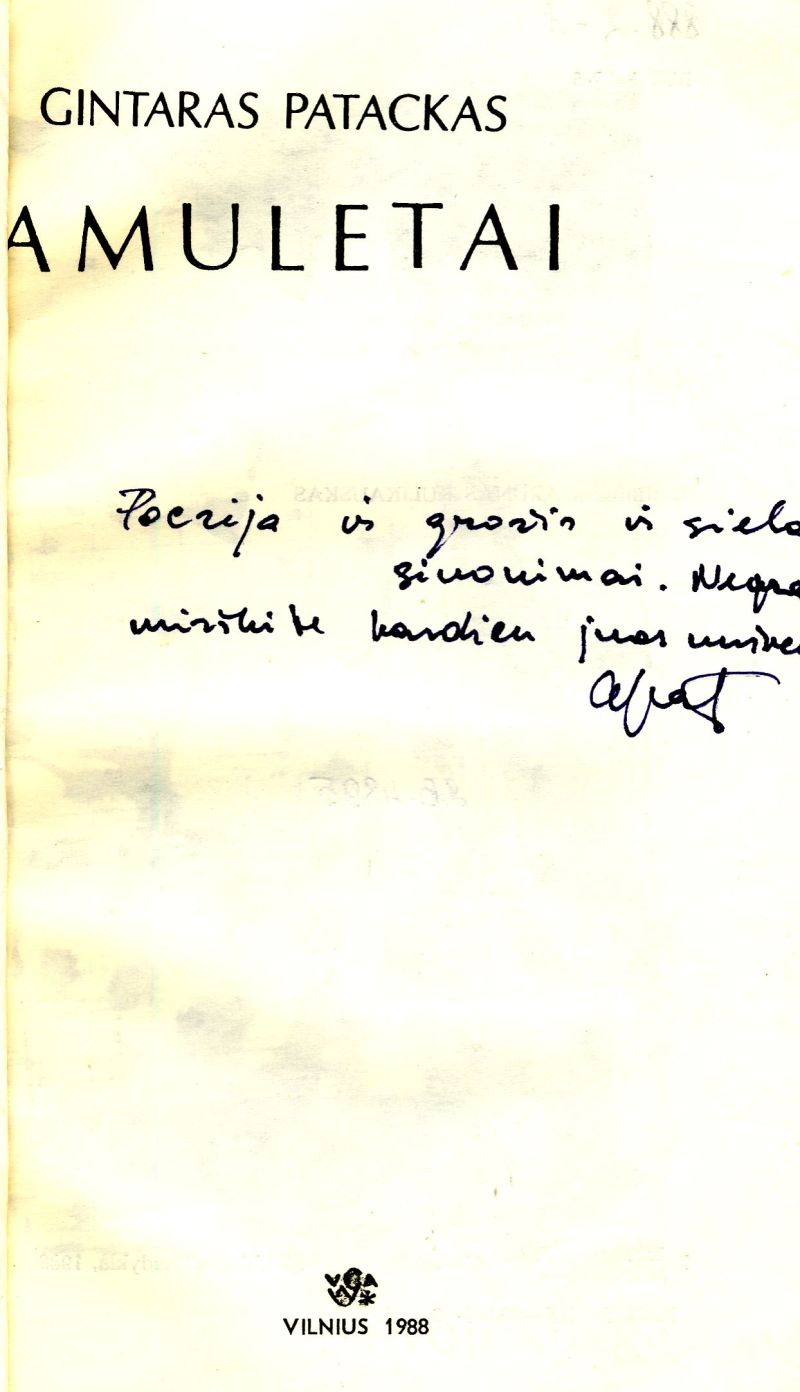 GINTARAS PATACKAS
AMULETAI
Poezija ir grožis ir siela
sinonimai. Nepra
mirškite kasdien juos
VILNIUS 1988